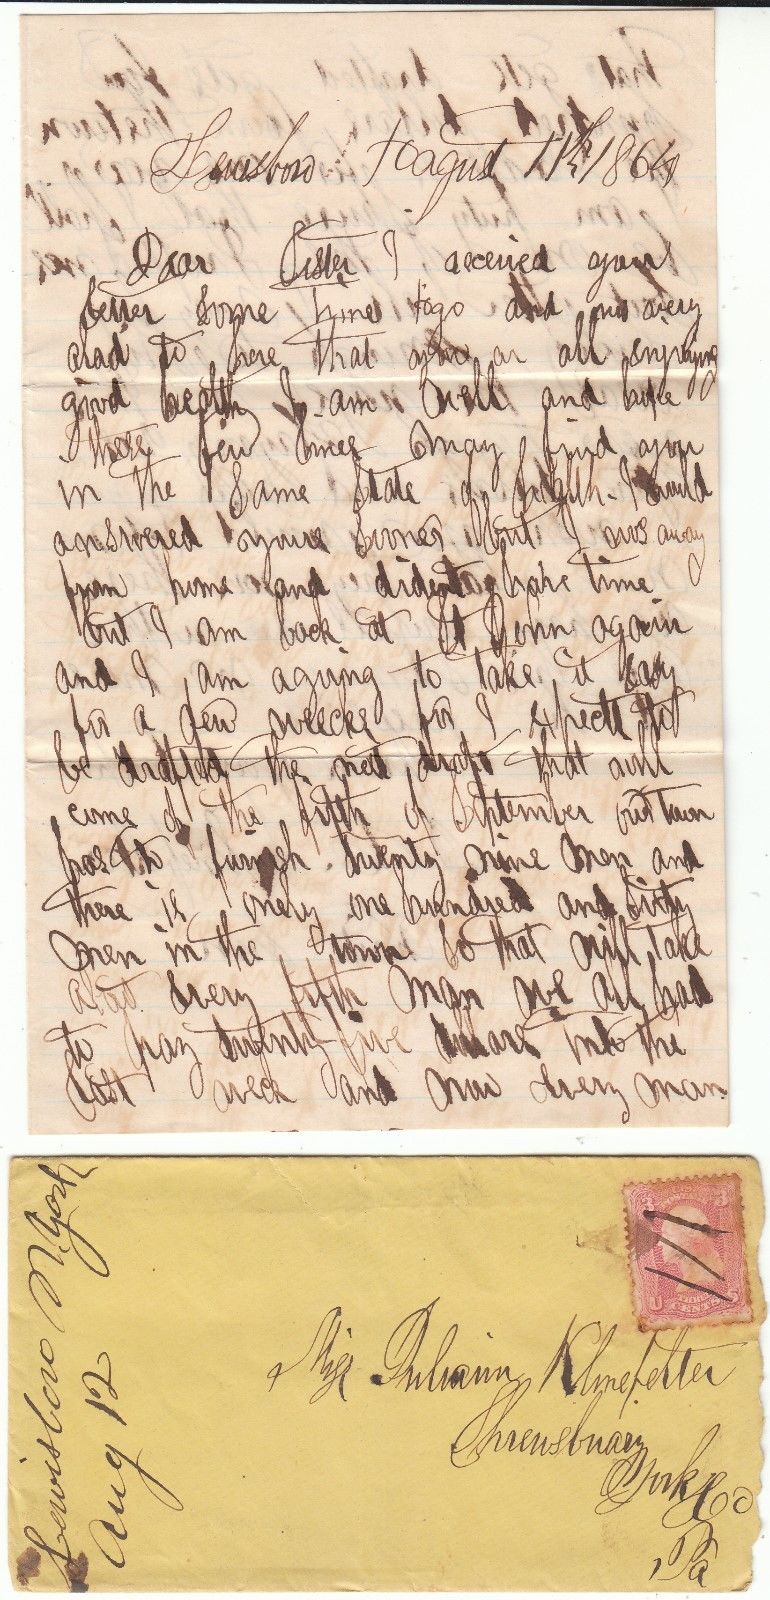 Lewisboro August 11th 1864
Dear Sister I received your
letter some time ago and was very
glad to here that you ar all enjoying
good health I am well and hope
these few lines may find you
in the same State of health I would
answered youre sooner but I was away
from home and dident have time
but I am back at St John again
and I am agoing to take it easy
for a few weecks for I expect to
be drafted the next draft that will
come of the fifth of September our town
has to furnish twenty nine men and
there is onely one hundred and sixty
men in the town so that will take
about every fifth man we all had
to pay twenty five dollars into the
last week and now every man
Lewisboro N. York
Aug 12
3 3
U S
CENTS
Miss Juliann Klinefelter
Shrewsbuary
York Co
Pa